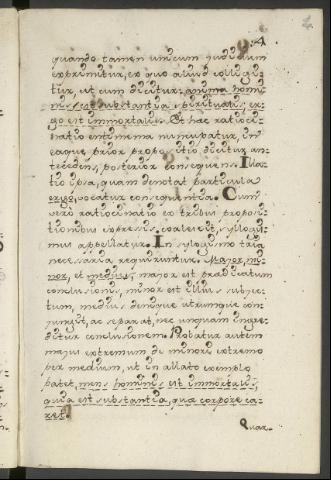 4
quando tamen unicum judicium
exprimitur, ex quo aliud colligi=
tur, ut cum dicitur: anima homi=
nis est substantia spiritualis, er=
go est immortalis. Et hac ratioci=
natio entimema nuncupatur, in
eaque, prior propositio dicitur an=
tecedens, posterior consequens. Illa=
tio ipsa, quam denotat particula
ergo, vocatur consequentia. Cum
vero ratiocinatio ex tribus proposi=
tionibus expressis coalescit, syllogis=
mus appellatur. In sylogismo tria
necessaria requiruntur. Major, mi=
nor, et medius, major est prædicatum
conclusionis, minor est illius subjec=
tum, medius denique utrumque con=
jungit, ac separat, nec unquam ingre=
ditur conclusionem. Probatur autem
majus extremum de minori extremo
per medium, ut in allato exemplo
patet, mens hominis est immortalis,
quia est substantia, quæ corpore ca=
ret.
Quar=